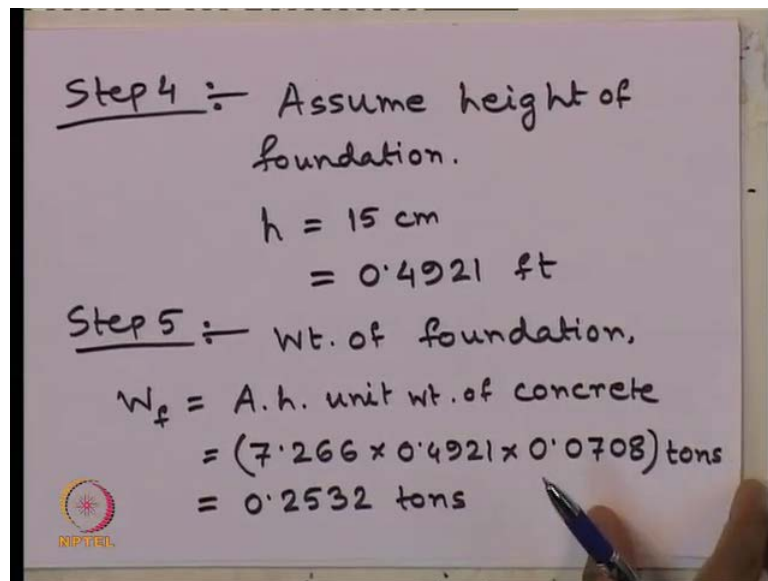 Step 4 :- Assume height of
foundation.
h = 15 cm
= 0.4921 ft
Step 5 :- Wt. of foundation,
W_f = A. h. unit wt. of concrete
= (7.266 × 0.4921 × 0.0708) tons
= 0.2532 tons
NPTEL